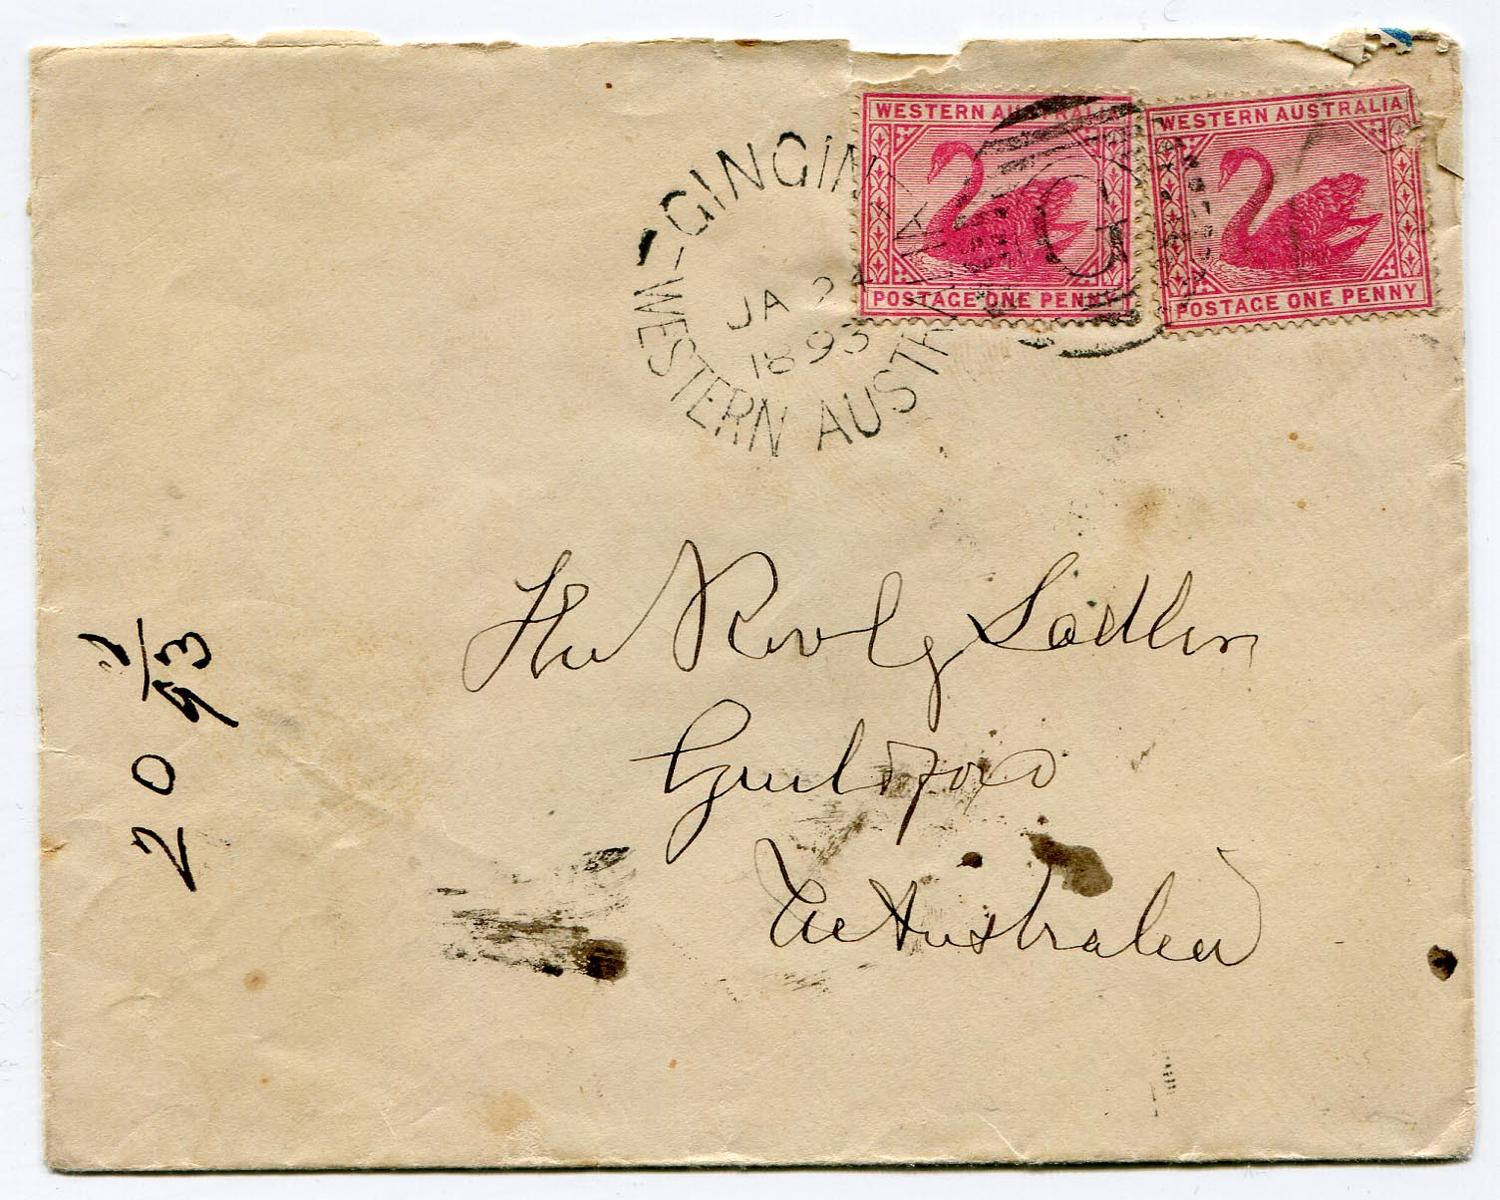 WESTERN AUSTRALIA
POSTAGE ONE PENNY
WESTERN AUSTRALIA
POSTAGE ONE PENNY
GINGIN
JA 24
1893
WESTERN AUSTRALIA
G
The Revd G Sadlier
Guildford
W Australia
20 1/93